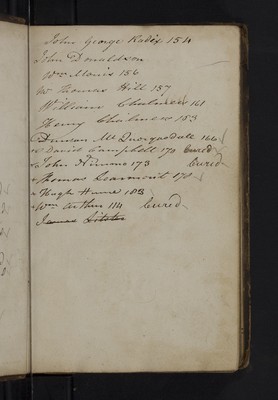 John George Rabix 154
John Donaldson
Wm Moris 156
W Thomas Hill 157
William Chalmers 161
Henry Chalmers 153
Duncan Mc 166
David Campbell 170 Cured
John Nimmo 173 Cured
Thomas Learmont 178
Hugh Hume 183
Wm Arthur 114 Cured
James